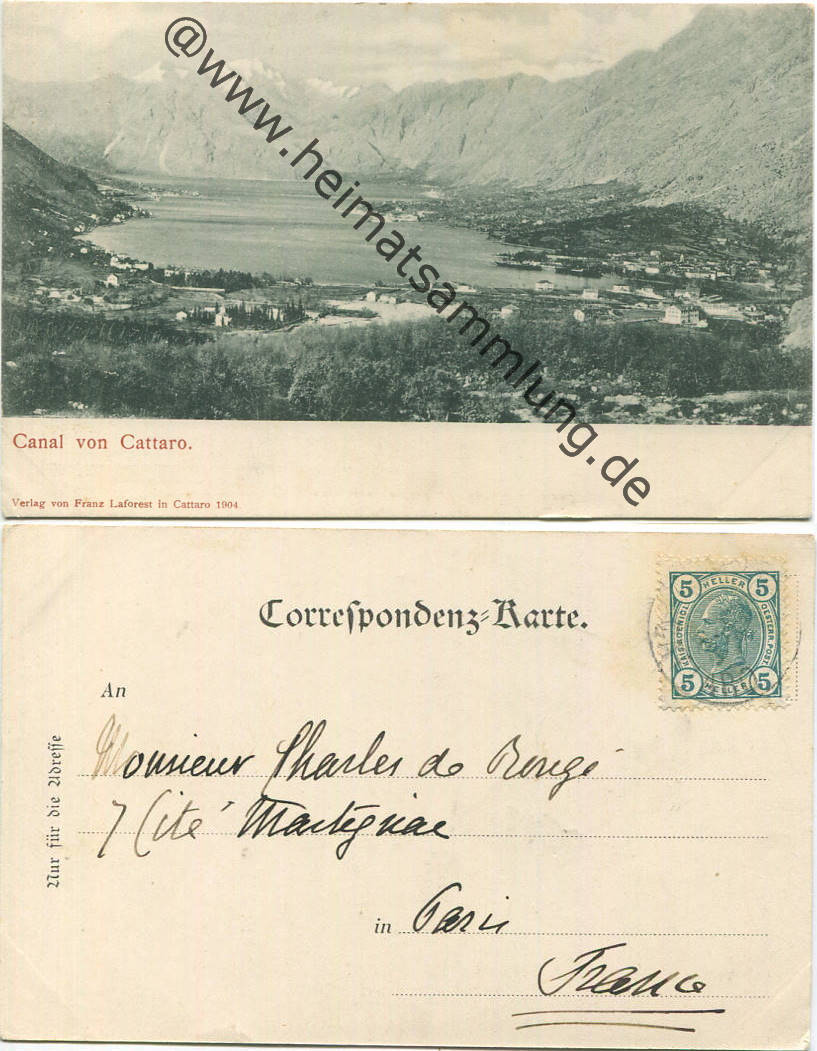 @www.heimatsammlung.de
Canal von Cattaro.
Verlag von Franz Laforest in Cattaro 1904
Correspondenz-Karte.
5 HELLER 5
KAIS. KOENIGL. OESTERR. POST.
5 HELLER 5
An
Nur für die Adresse
Monsieur Charles de Rougé
7 Cité Martignac
in Paris
France